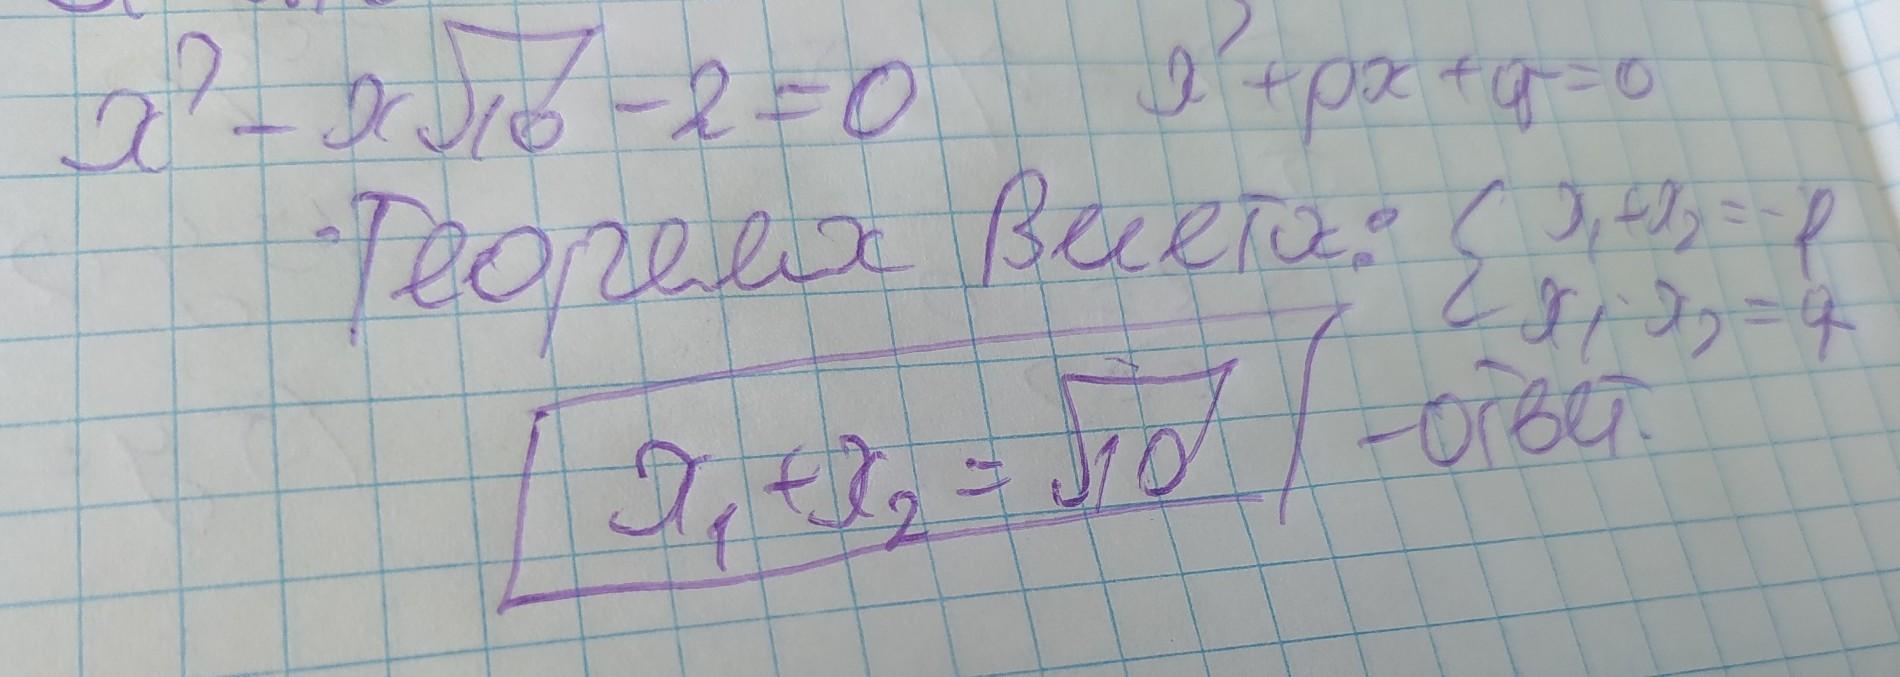 x² - x√10 - 2 = 0
x² + px + q = 0
Теорема Виета: { x₁ + x₂ = -p
x₁ · x₂ = q
x₁ + x₂ = √10 - ответ.